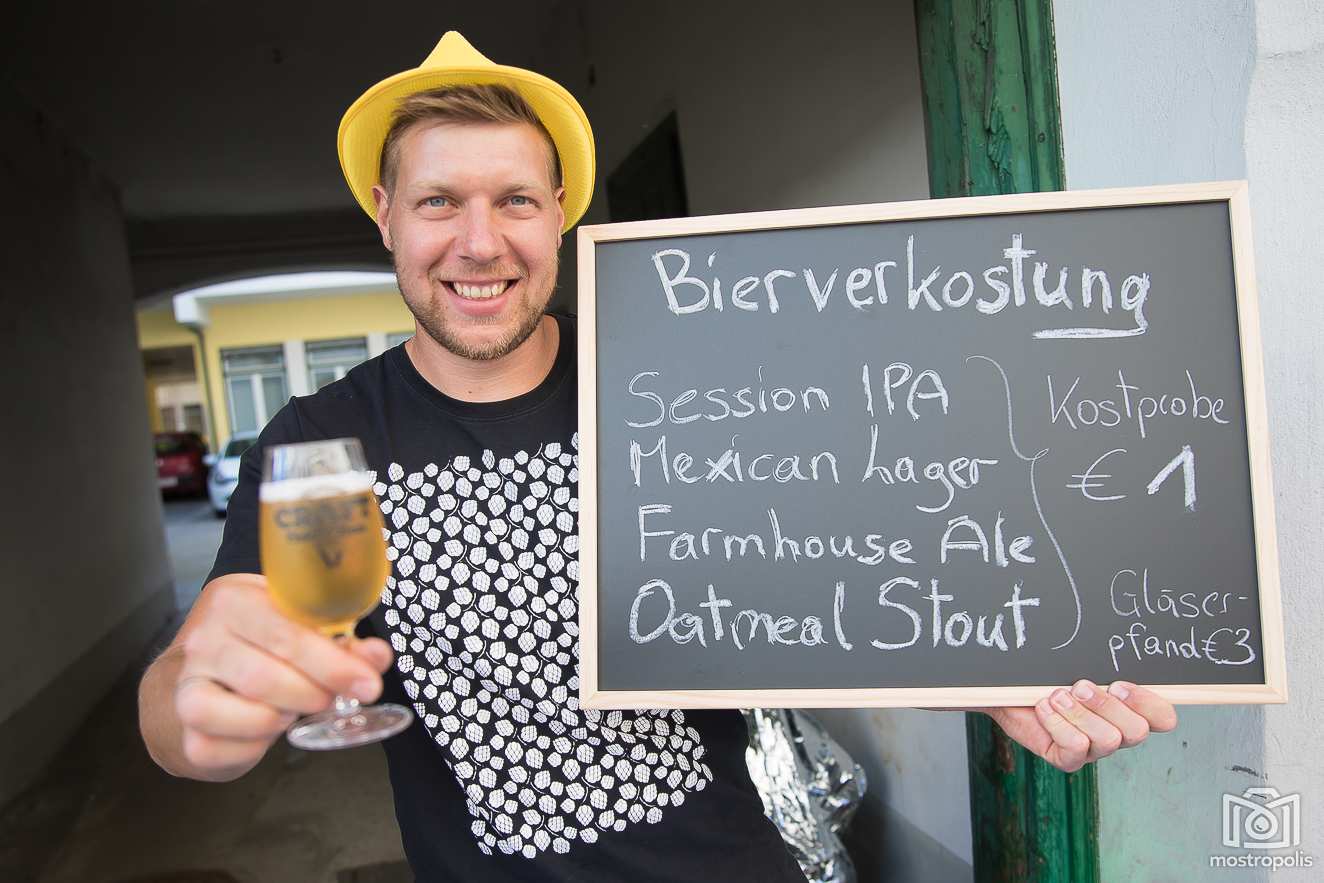 Bierverkostung
Session IPA
Mexican Lager
Farmhouse Ale
Oatmeal Stout
Kostprobe
€ 1
Gläser-
pfand €3
CRAFT
mostropolis